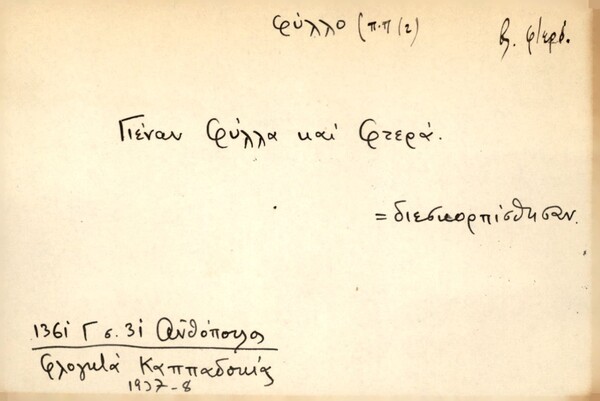 φύλλο (π.π (2) βλ. φτερό.
Γιέναν φύλλα καί φτερά.
= διεσκορπίσθησαν.
1361 Γ σ. 31 Ανθόπουλος
Φλογητά Καππαδοκίας
1937-8